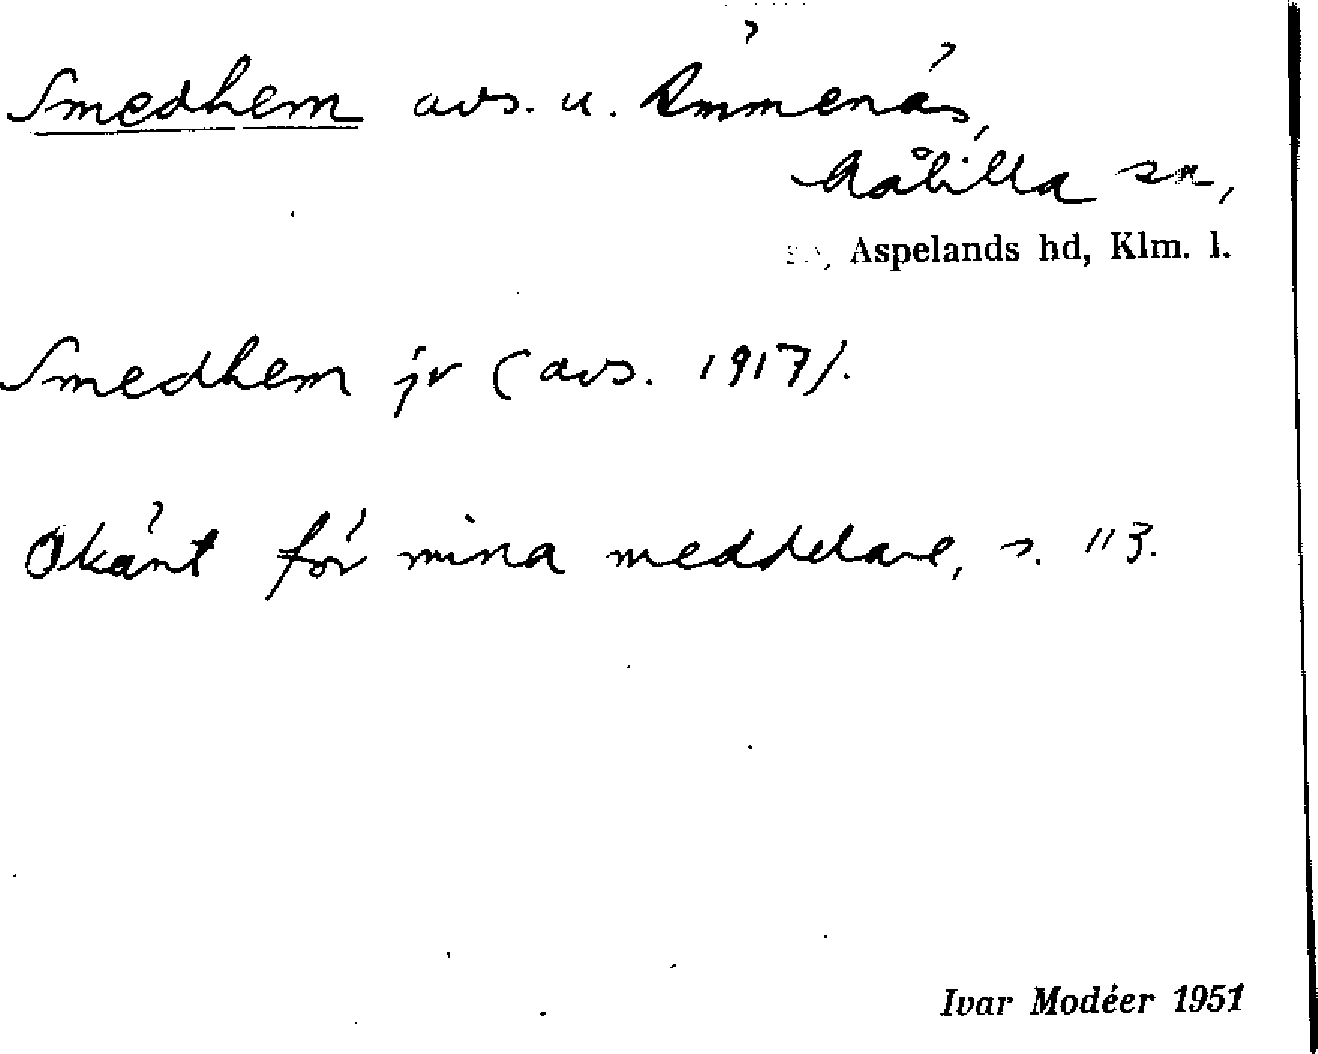 Smedhem avs. u. Ämmenäs,
Målilla sn,
Aspelands hd, Klm. l.
Smedhem jv (avs. 1917).
Okänt för mina meddelare, s. 113.
Ivar Modéer 1951